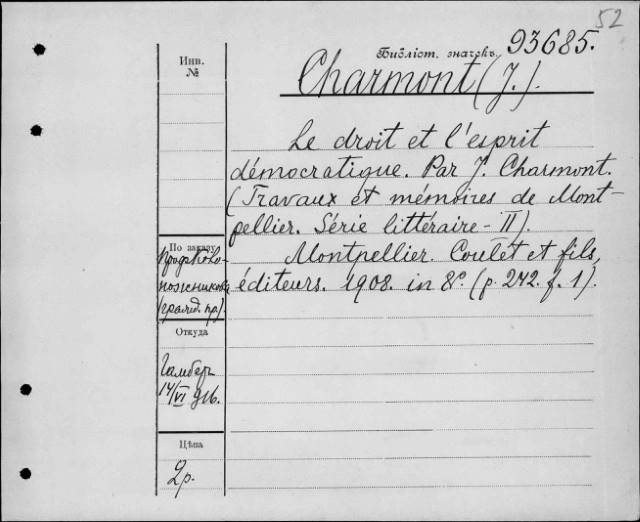 52
Библіот. значекъ 93685.
Инв.
№
Charmont (J.).
Le droit et l'esprit
démocratique. Par J. Charmont.
(Travaux et mémoires de Mont-
pellier. Série littéraire - II).
Montpellier. Coulet et fils,
éditeurs. 1908. in 8º. (p. 242. f. 1).
По заказу
(гражд. пр.).
Откуда
14/VI 916.
Цѣна
2р.